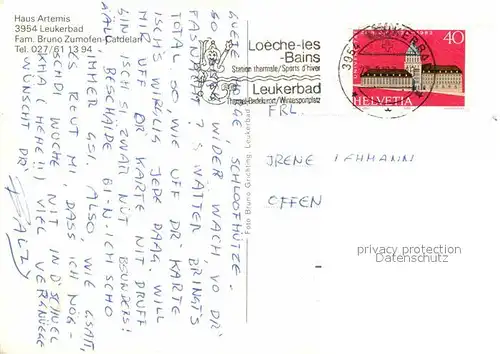 Haus Artemis
3954 Leukerbad
Fam. Bruno Zumofen-Cattelan
Tel. 027/61 13 94
GUETE SCHLOOFHÜTZE.
SO WIDER WACH, VO DR'
FASNACHT? S WÄTTER BRINGT'S
TOTAL SO, WIE UFF DR' KARTE
ISCH'S WIRGLIG JEDE DAAG. WILL
MIR UFF DR' KARTE NIT DRUFF
SIN ISCH SI ZWAR NÜT BSUNDERS!
AABER BESCHEIDE BI-N-ICH SCHO
IMMER GSI. ALSO, WIE GSAIT,
ES REUT MI, DASS ICH NÖG-
SCHDI WUCHE NIT IN D'SCHUEL
KHA (HEHE!!) VIEL VERGNÜEGE
WÜNSCHT DR'
Foto Bruno Grichting Leukerbad
Loèche-les
-Bains
Station thermale/Sports d'hiver
Leukerbad
Thermal-Badekurort/Wintersportplatz
3954 LEUKERBAD
1983
40
HELVETIA
FRL.
IRENE LEHMANN
EFFEN
privacy protection
Datenschutz